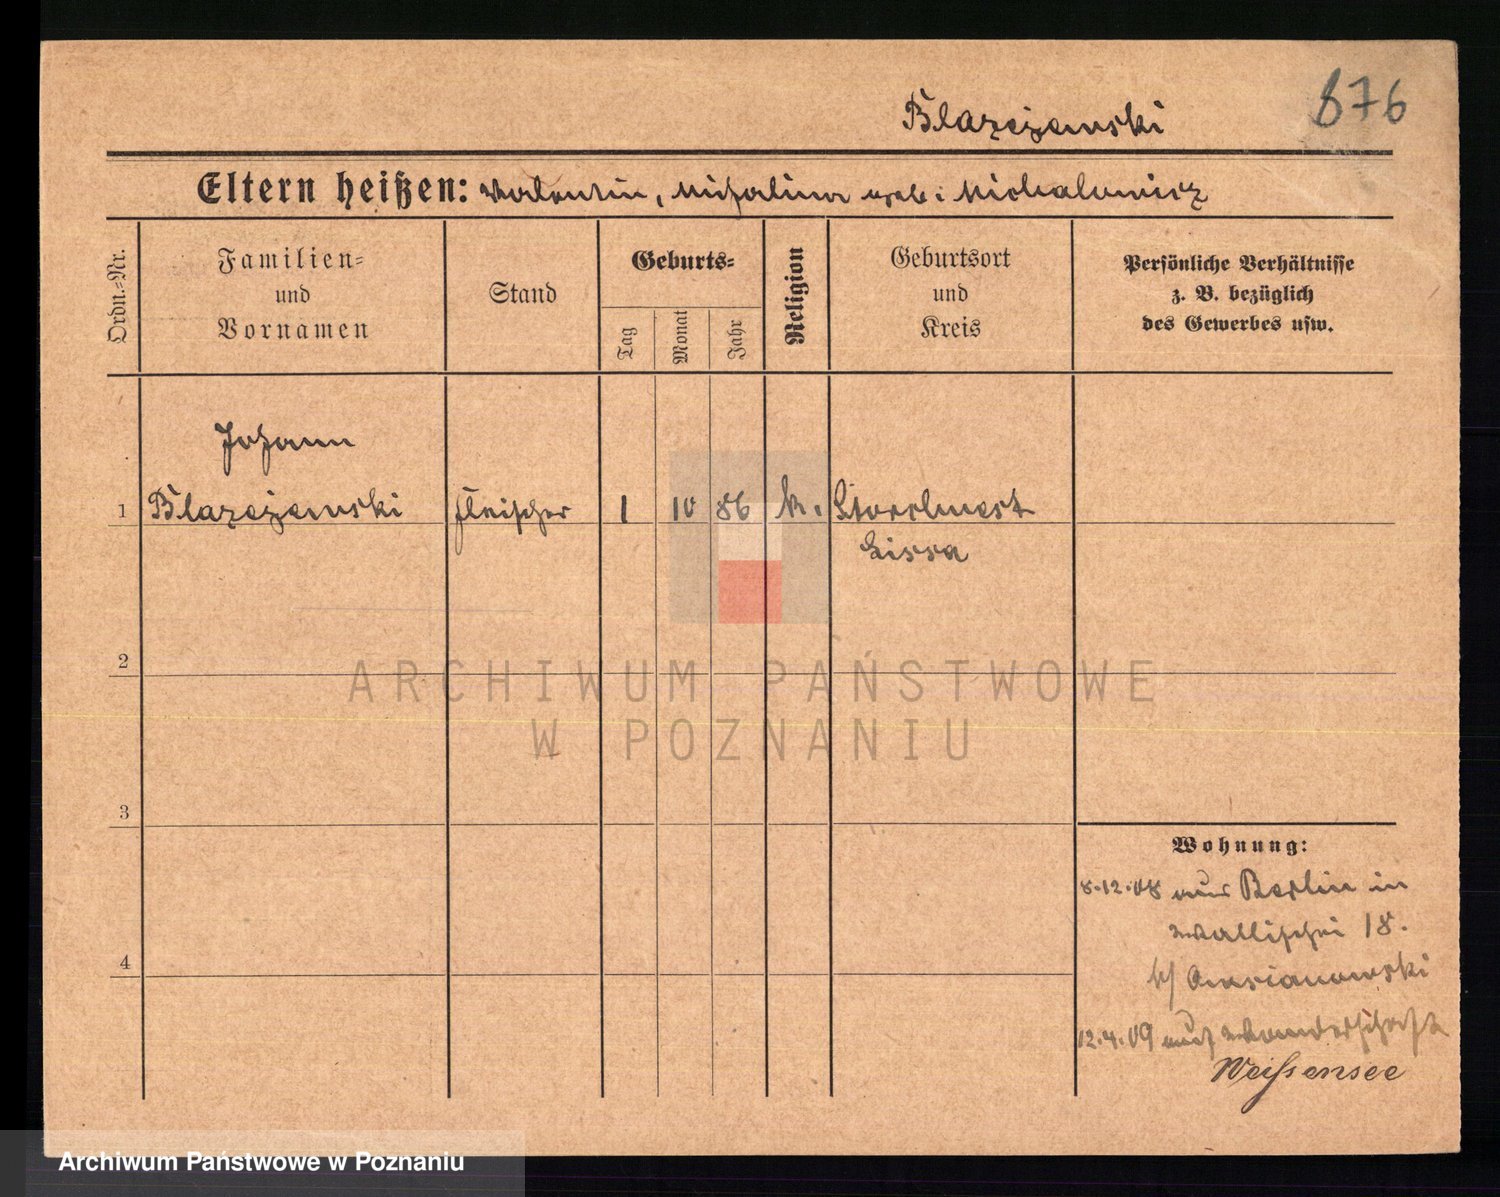 Blazejewski
876
Eltern heißen: Valentin, Michalina geb: Michalowicz
Ordn.-Nr.
Familien-
und
Vornamen
Stand
Geburts-
Tag
Monat
Jahr
Religion
Geburtsort
und
Kreis
Persönliche Verhältnisse
z. B. bezüglich
des Gewerbes usw.
Johann
1 Blazejewski Fleischer 1 10 86 k. Storchnest
Lissa
2
3
4
Wohnung:
8.12.08 aus Berlin in
Wallischei 18.
b/
12.4.09 auf Wanderschaft
Weissensee
ARCHIWUM PAŃSTWOWE
W POZNANIU
Archiwum Państwowe w Poznaniu